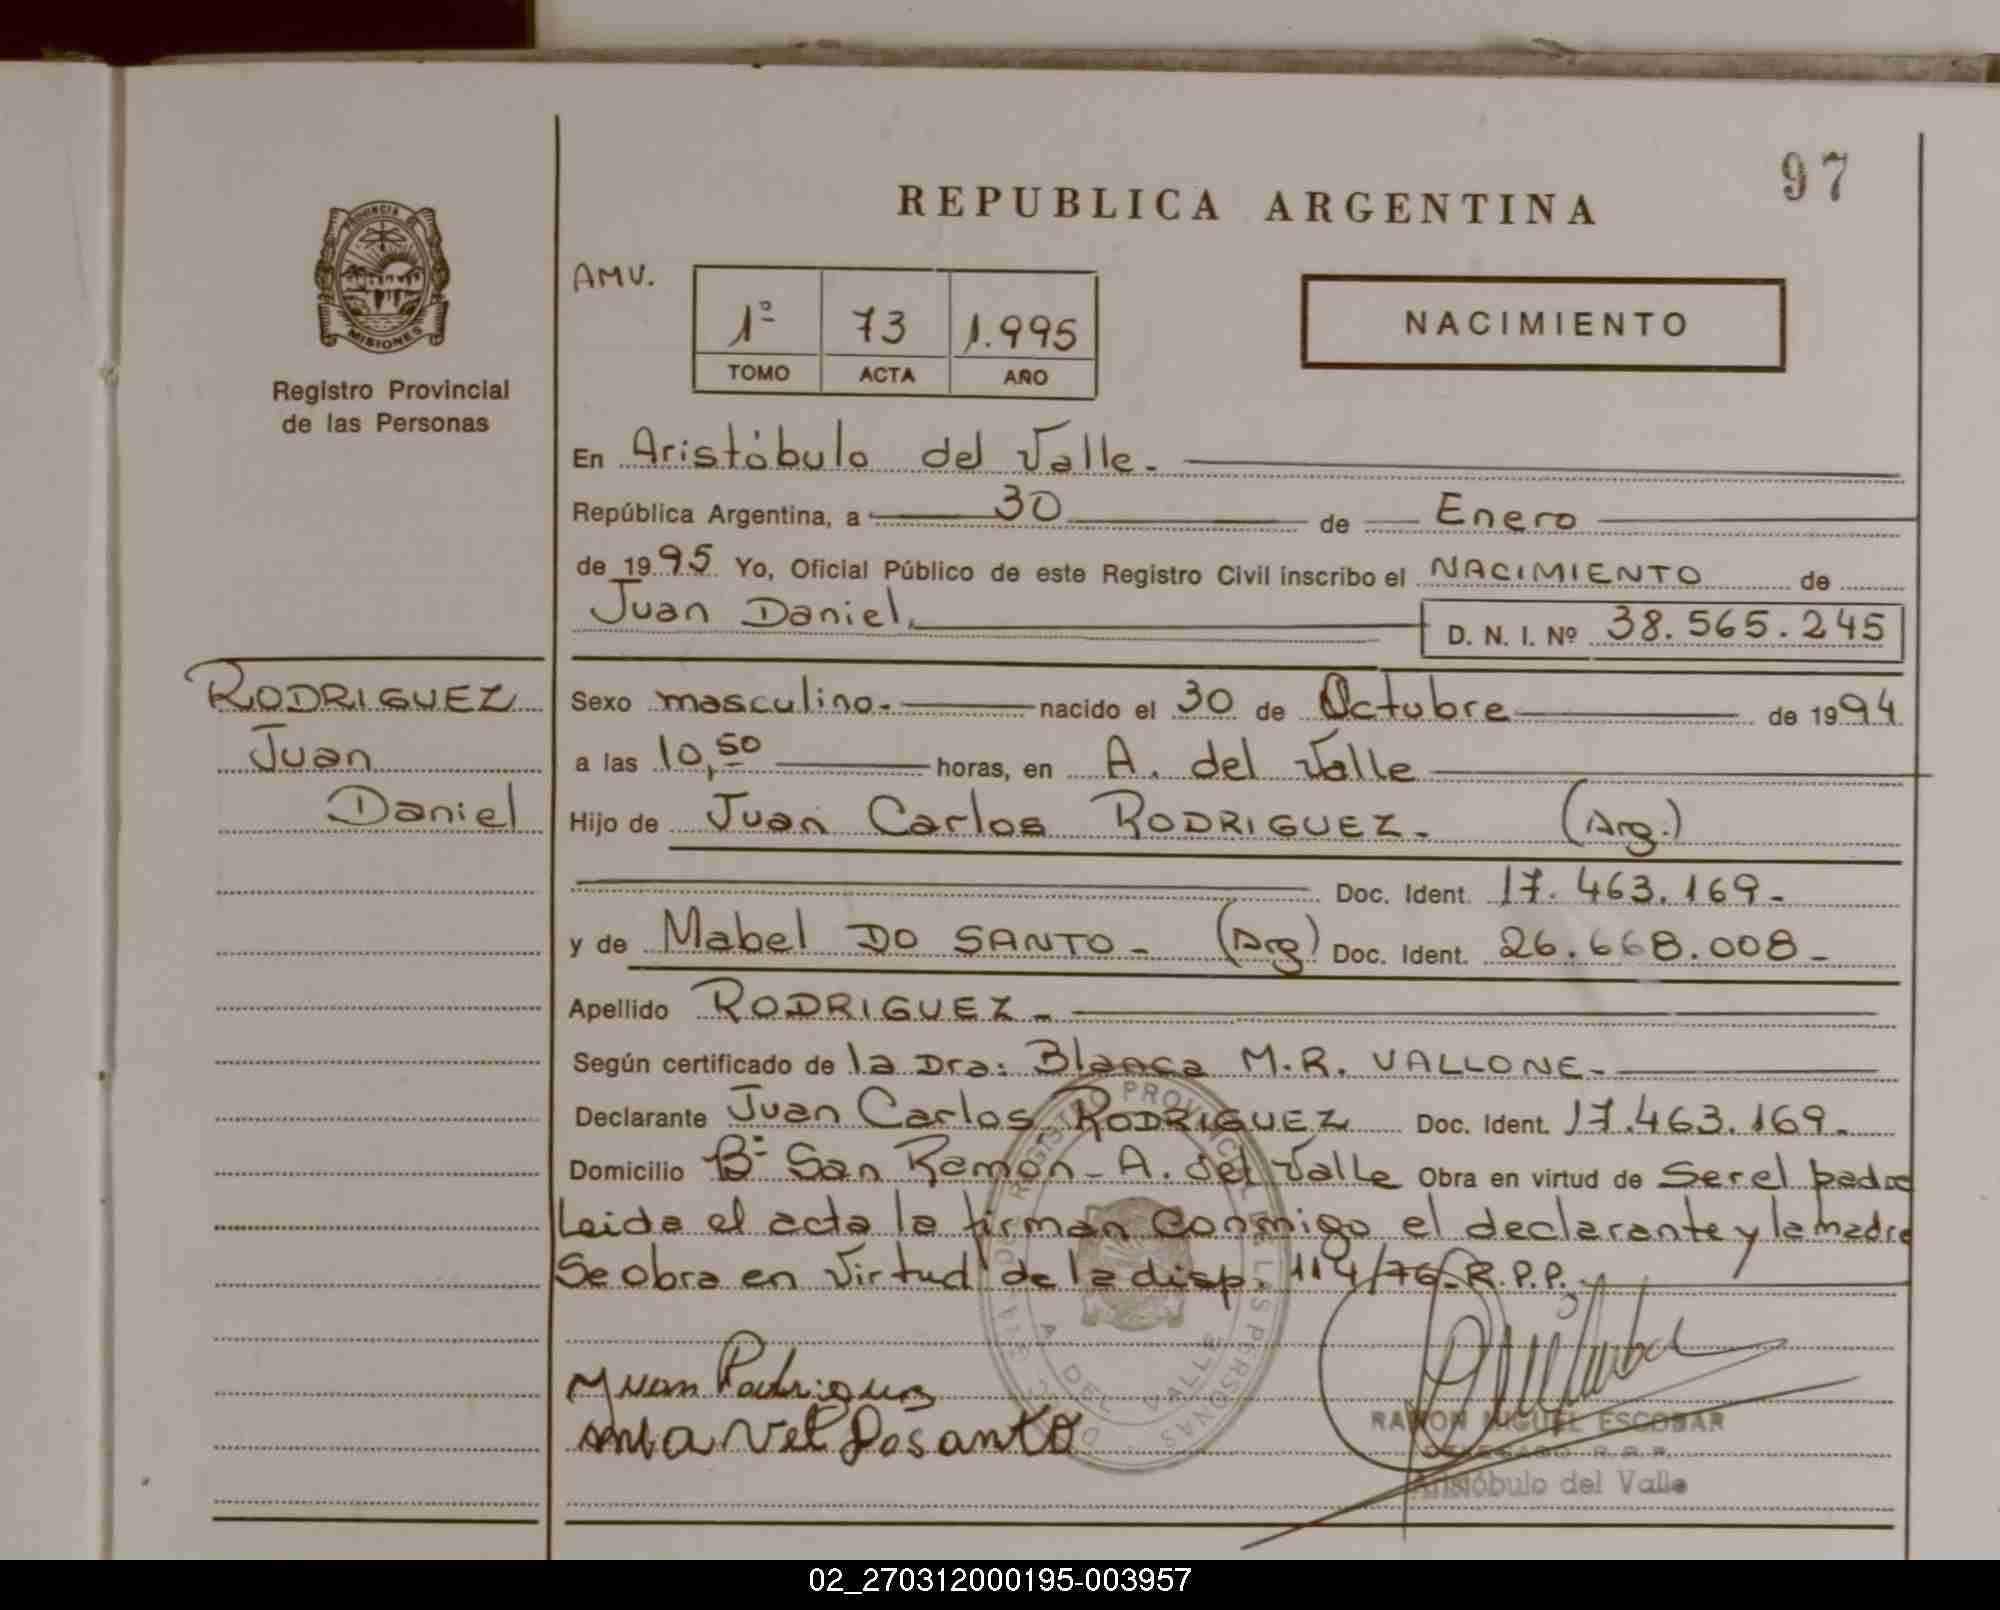 97
REPUBLICA ARGENTINA
PROVINCIA DE
MISIONES
Registro Provincial
de las Personas
AMV.
1º 73 1.995
TOMO ACTA AÑO
NACIMIENTO
En Aristóbulo del Valle.
República Argentina, a 30 de Enero
de 1995 Yo, Oficial Público de este Registro Civil inscribo el NACIMIENTO de
Juan Daniel. D. N. I. Nº 38.565.245
RODRIGUEZ
Juan
Daniel
Sexo masculino. nacido el 30 de Octubre de 1994
a las 10,50 horas, en A. del Valle
Hijo de Juan Carlos RODRIGUEZ. (Arg.)
Doc. Ident. 17.463.169.
y de Mabel DO SANTO. (Arg) Doc. Ident. 26.668.008.
Apellido RODRIGUEZ.
Según certificado de la Dra: Blanca M.R. VALLONE.
Declarante Juan Carlos RODRIGUEZ Doc. Ident. 17.463.169.
Domicilio Bº San Ramon - A. del Valle Obra en virtud de Ser el padre
Leida el acta la firman conmigo el declarante y la madre
Se obra en virtud de la disp. 114/76-R.P.P.
REGISTRO PROVINCIAL DE LAS PERSONAS
A. DEL VALLE
Juan Rodriguez
RAMON MIGUEL ESCOBAR
DELEGADO R.P.P.
Aristóbulo del Valle
02_270312000195-003957